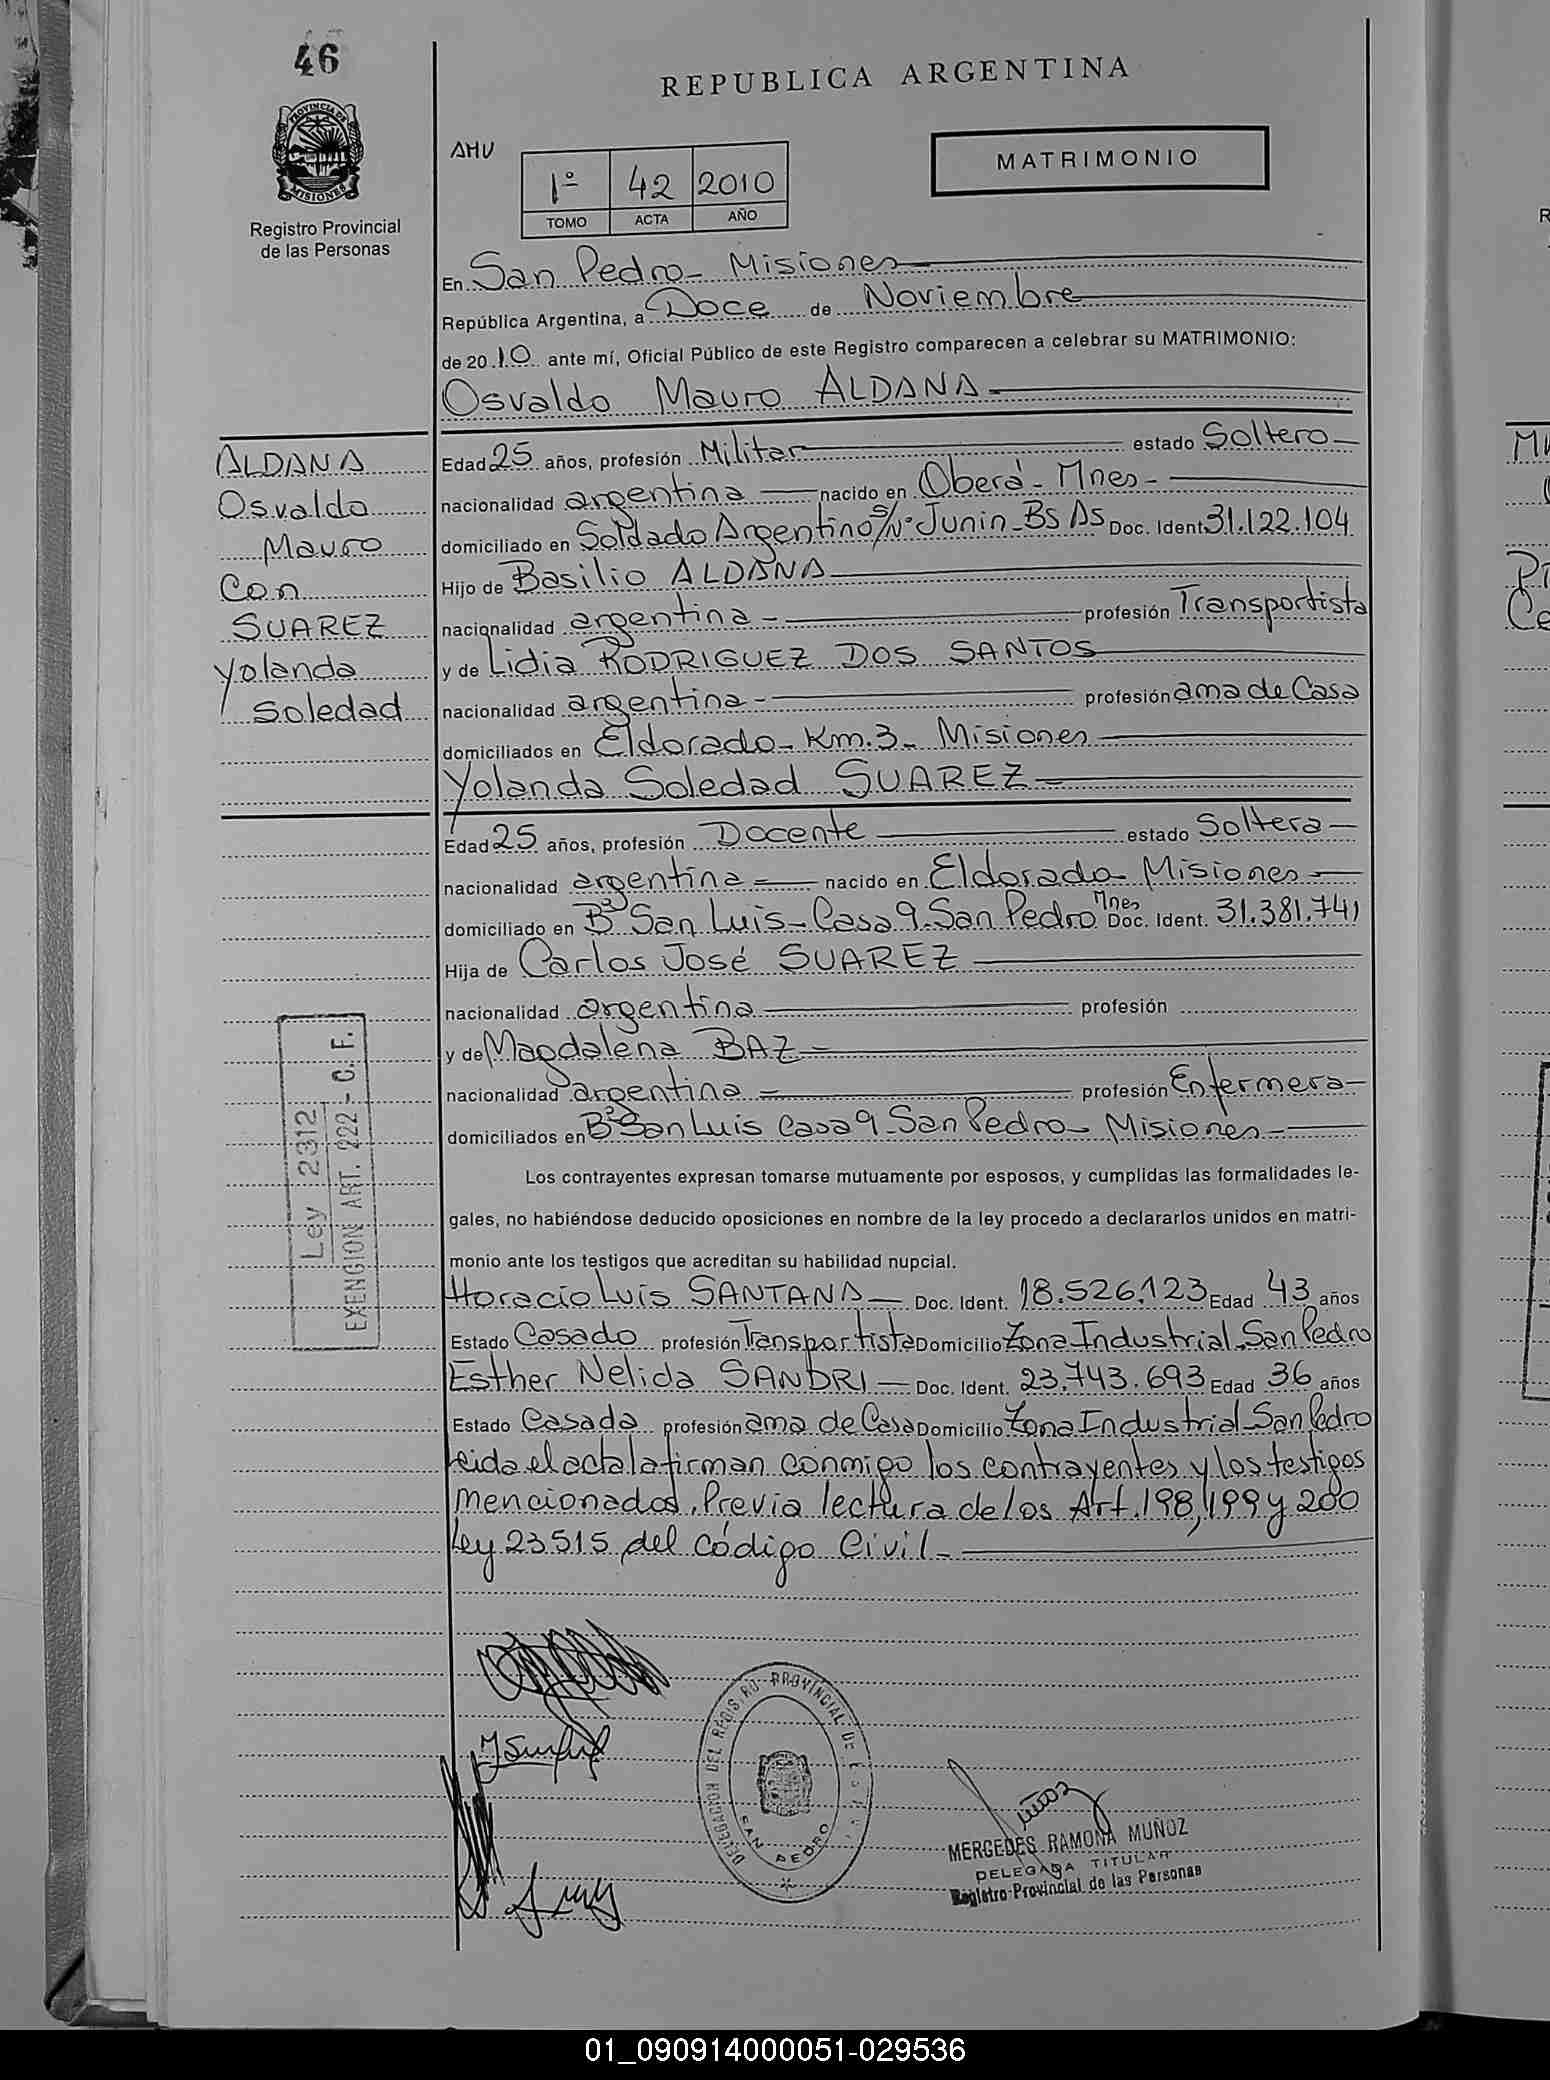 46
REPUBLICA ARGENTINA
PROVINCIA DE MISIONES
Registro Provincial
de las Personas
AMU
1º 42 2010
TOMO ACTA AÑO
MATRIMONIO
En San Pedro - Misiones
República Argentina, a Doce de Noviembre
de 2010 ante mí, Oficial Público de este Registro comparecen a celebrar su MATRIMONIO:
Osvaldo Mauro ALDANA
ALDANA
Osvaldo
Mauro
Con
SUAREZ
Yolanda
Soledad
Edad 25 años, profesión Militar estado Soltero
nacionalidad argentina nacido en Oberá - Mnes -
domiciliado en Soldado Argentino S/Nº Junin - Bs As Doc. Ident 31.122.104
Hijo de Basilio ALDANA
nacionalidad argentina - profesión Transportista
y de Lidia RODRIGUEZ DOS SANTOS
nacionalidad argentina - profesión ama de Casa
domiciliados en Eldorado - Km.3 - Misiones
Yolanda Soledad SUAREZ
Edad 25 años, profesión Docente estado Soltera
nacionalidad argentina nacido en Eldorado - Misiones
domiciliado en Bº San Luis - Casa 9 - San Pedro Mnes Doc. Ident. 31.381.741
Hija de Carlos José SUAREZ
nacionalidad argentina profesión
y de Magdalena BAZ
nacionalidad argentina profesión Enfermera
domiciliados en Bº San Luis Casa 9 - San Pedro - Misiones
Ley 2312
EXENCION ART. 222 - C. F.
Los contrayentes expresan tomarse mutuamente por esposos, y cumplidas las formalidades le-
gales, no habiéndose deducido oposiciones en nombre de la ley procedo a declararlos unidos en matri-
monio ante los testigos que acreditan su habilidad nupcial.
Horacio Luis SANTANA Doc. Ident. 18.526.123 Edad 43 años
Estado Casado profesión Transportista Domicilio Zona Industrial - San Pedro
Esther Nelida SANDRI Doc. Ident. 23.743.693 Edad 36 años
Estado Casada profesión ama de Casa Domicilio Zona Industrial - San Pedro
Leida el acta la firman conmigo los contrayentes y los testigos
mencionados. Previa lectura de los Art. 198, 199 y 200
Ley 23515 del Código Civil -
DELEGACION DEL REGISTRO PROVINCIAL DE
SAN PEDRO
MERCEDES RAMONA MUÑOZ
DELEGADA TITULAR
Registro Provincial de las Personas
01_090914000051-029536